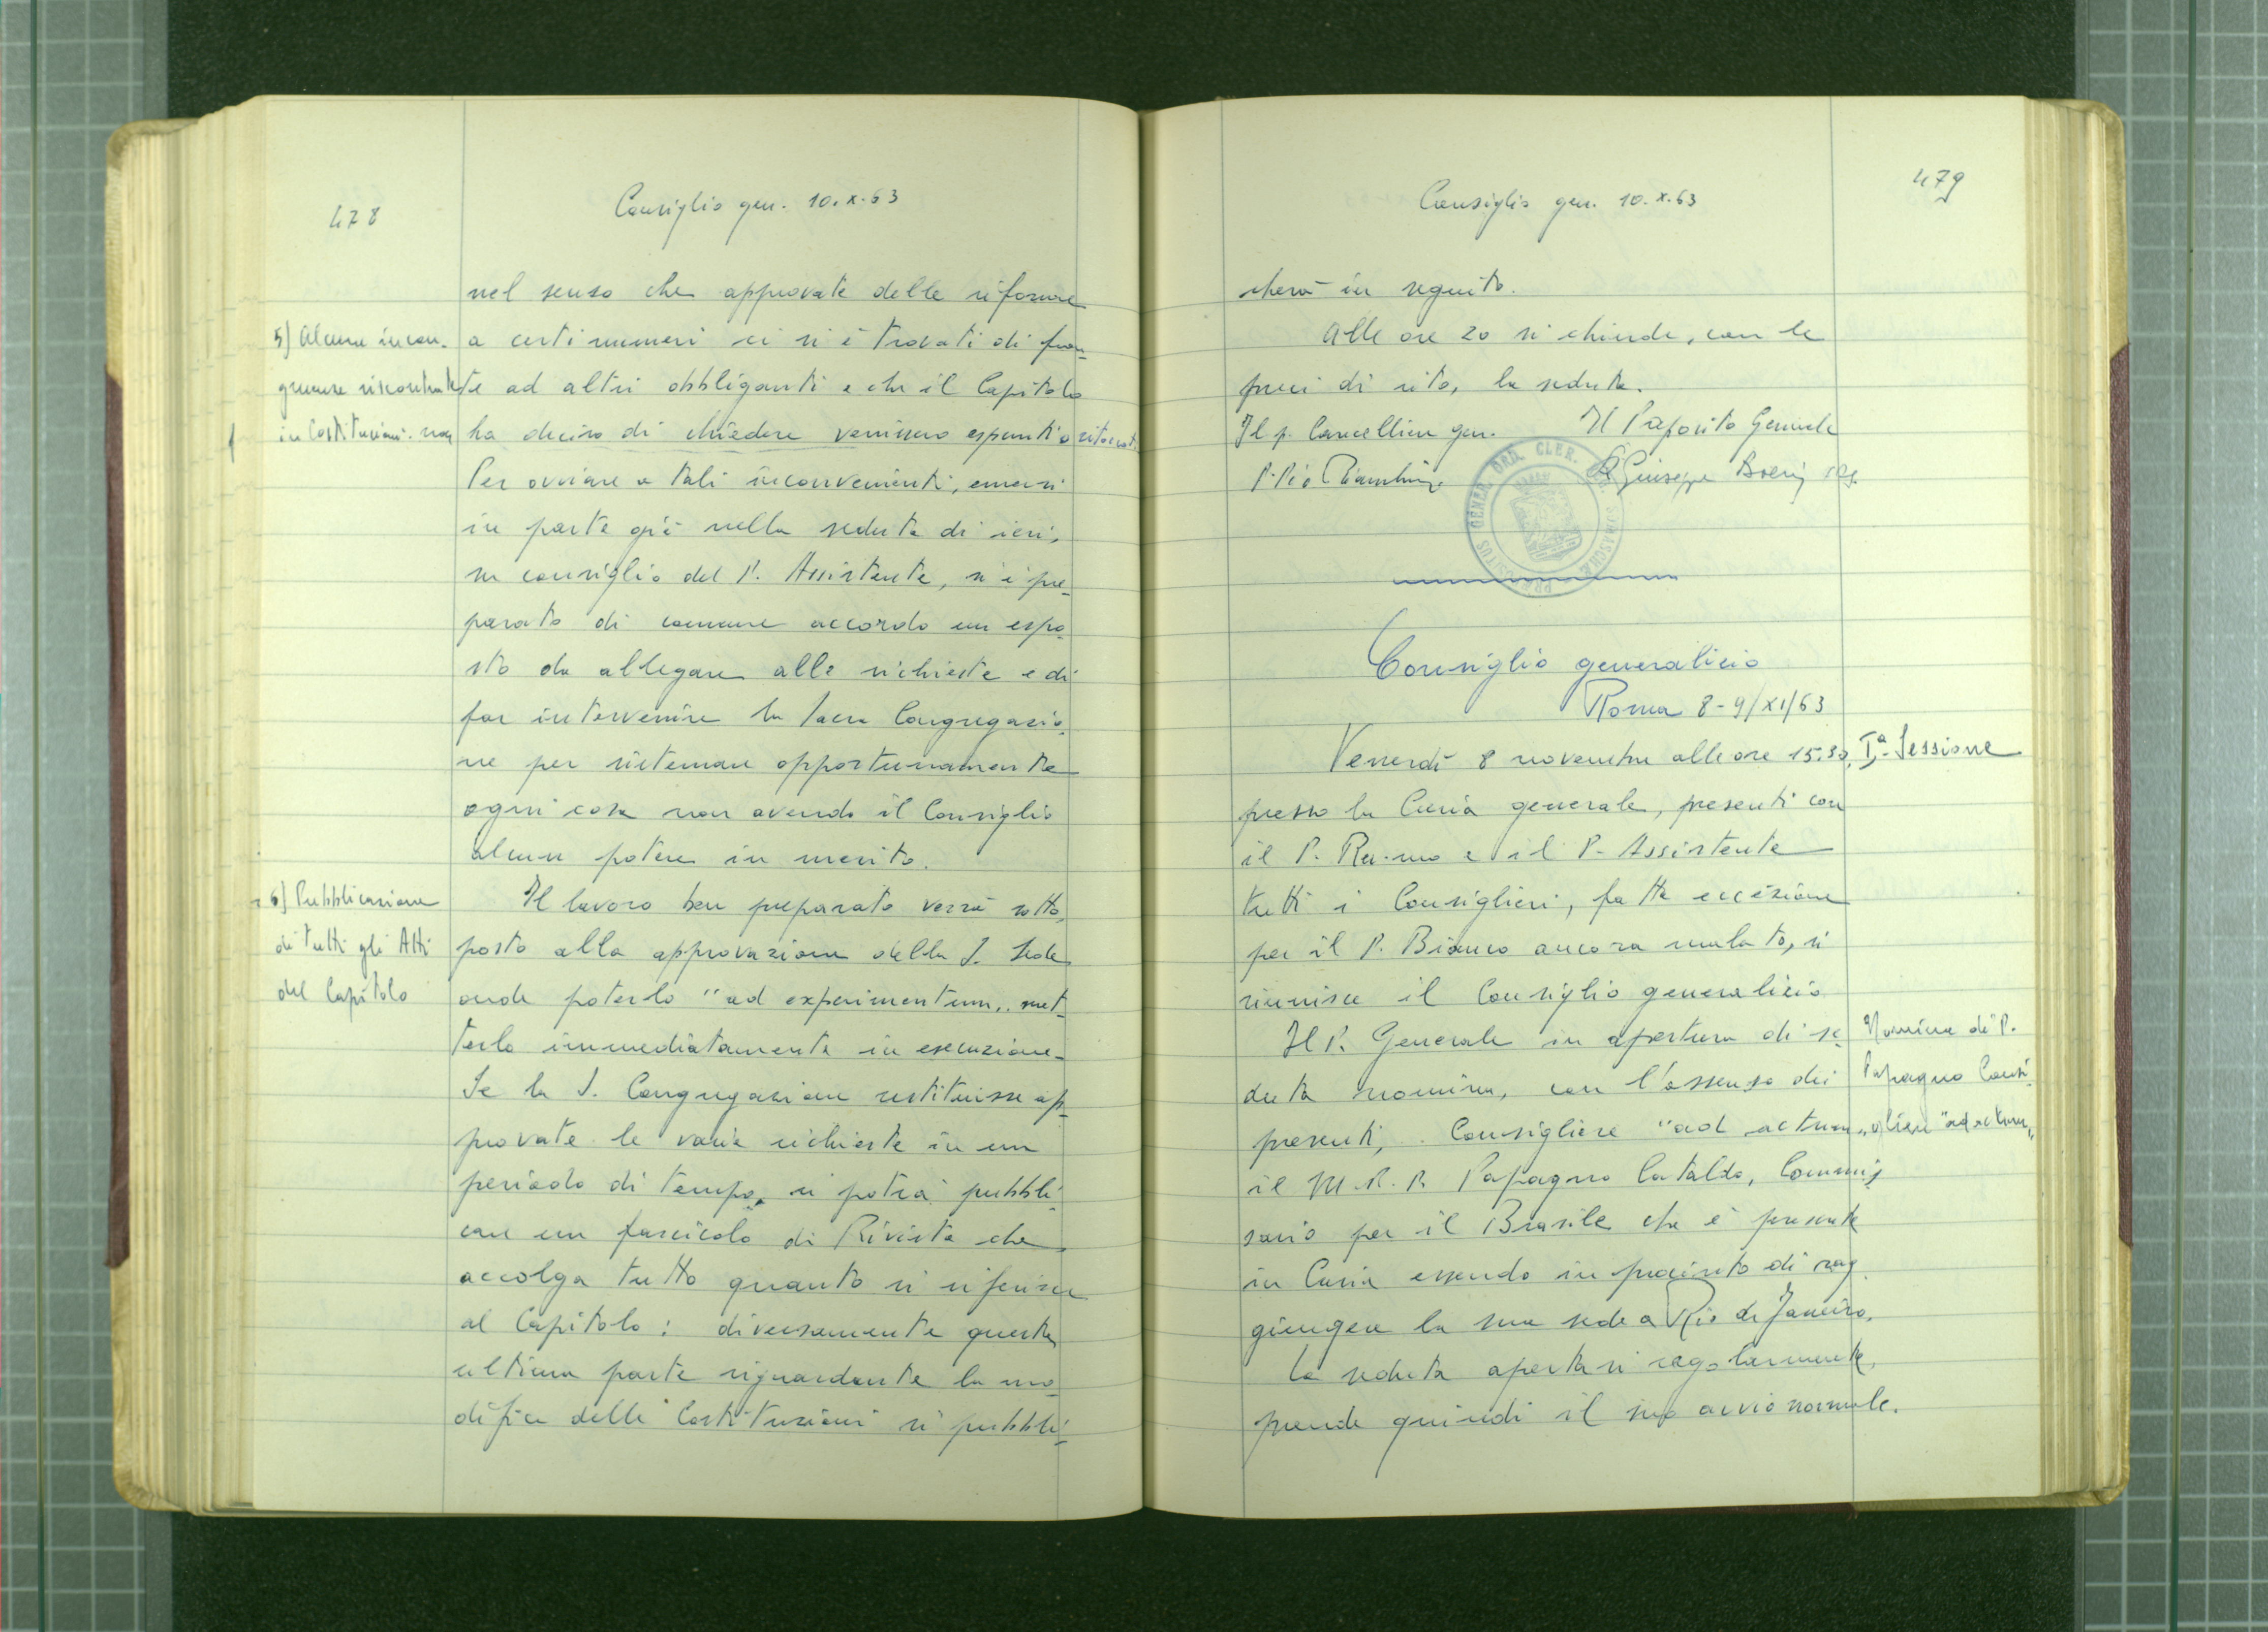 478
Consiglio gen. 10.X.63
nel senso che approvate delle riforme
5) Alcune incon-
a certi numeri ci si è trovati di fron-
gruenze riscontrate
te ad altri obbliganti e che il Capitolo
in Costituzioni. non
ha deciso di chiedere venissero espunti o ritoccati.
Per ovviare a tali inconvenienti, emersi
in parte già nella seduta di ieri,
su consiglio del P. Assistente, si è pre-
parato di comune accordo un espo-
sto da allegare alle richieste e di
far intervenire la Sacra Congregazio-
ne per sistemare opportunamente
ogni cosa non avendo il Consiglio
alcun potere in merito.
6) Pubblicazione
di tutti gli Atti
del Capitolo
Il lavoro ben preparato verrà sotto-
posto alla approvazione della S. Sede
onde poterlo "ad experimentum" met-
terlo immediatamente in esecuzione.
Se la S. Congregazione restituisse ap-
provate le varie richieste in un
periodo di tempo, si potrà pubbli-
care un fascicolo di Rivista che
accolga tutto quanto si riferisce
al Capitolo: diversamente questa
ultima parte riguardante la mo-
difica delle Costituzioni si pubbli-
479
Consiglio gen. 10.X.63
cherà in seguito.
Alle ore 20 si chiude, con le
preci di rito, la seduta.
Il p. Cancelliere gen. Il Preposito Generale
P. Pio Bianchini P. Giuseppe Boeris crs.
PRAEPOSITUS GENER. ORD. CLER. SOMASCHAE
Consiglio generalizio
Roma 8-9/XI/63
Venerdì 8 novembre alle ore 15.30,
Iª Sessione
presso la Curia generale, presenti con
il P. Rev.mo e il P. Assistente
tutti i Consiglieri, fatta eccezione
per il P. Bianco ancora malato, si
riunisce il Consiglio generalizio.
Il P. Generale in apertura di se-
Nomina di P.
duta nomina, con l'assenso dei
Papagno Consi-
presenti, Consigliere "ad actum"
gliere "ad actum"
il M.R.P. Papagno Cataldo, Commis-
sario per il Brasile che è presente
in Curia essendo in procinto di rag-
giungere la sua sede a Rio de Janeiro.
La seduta apertasi regolarmente,
prende quindi il suo avvio normale.